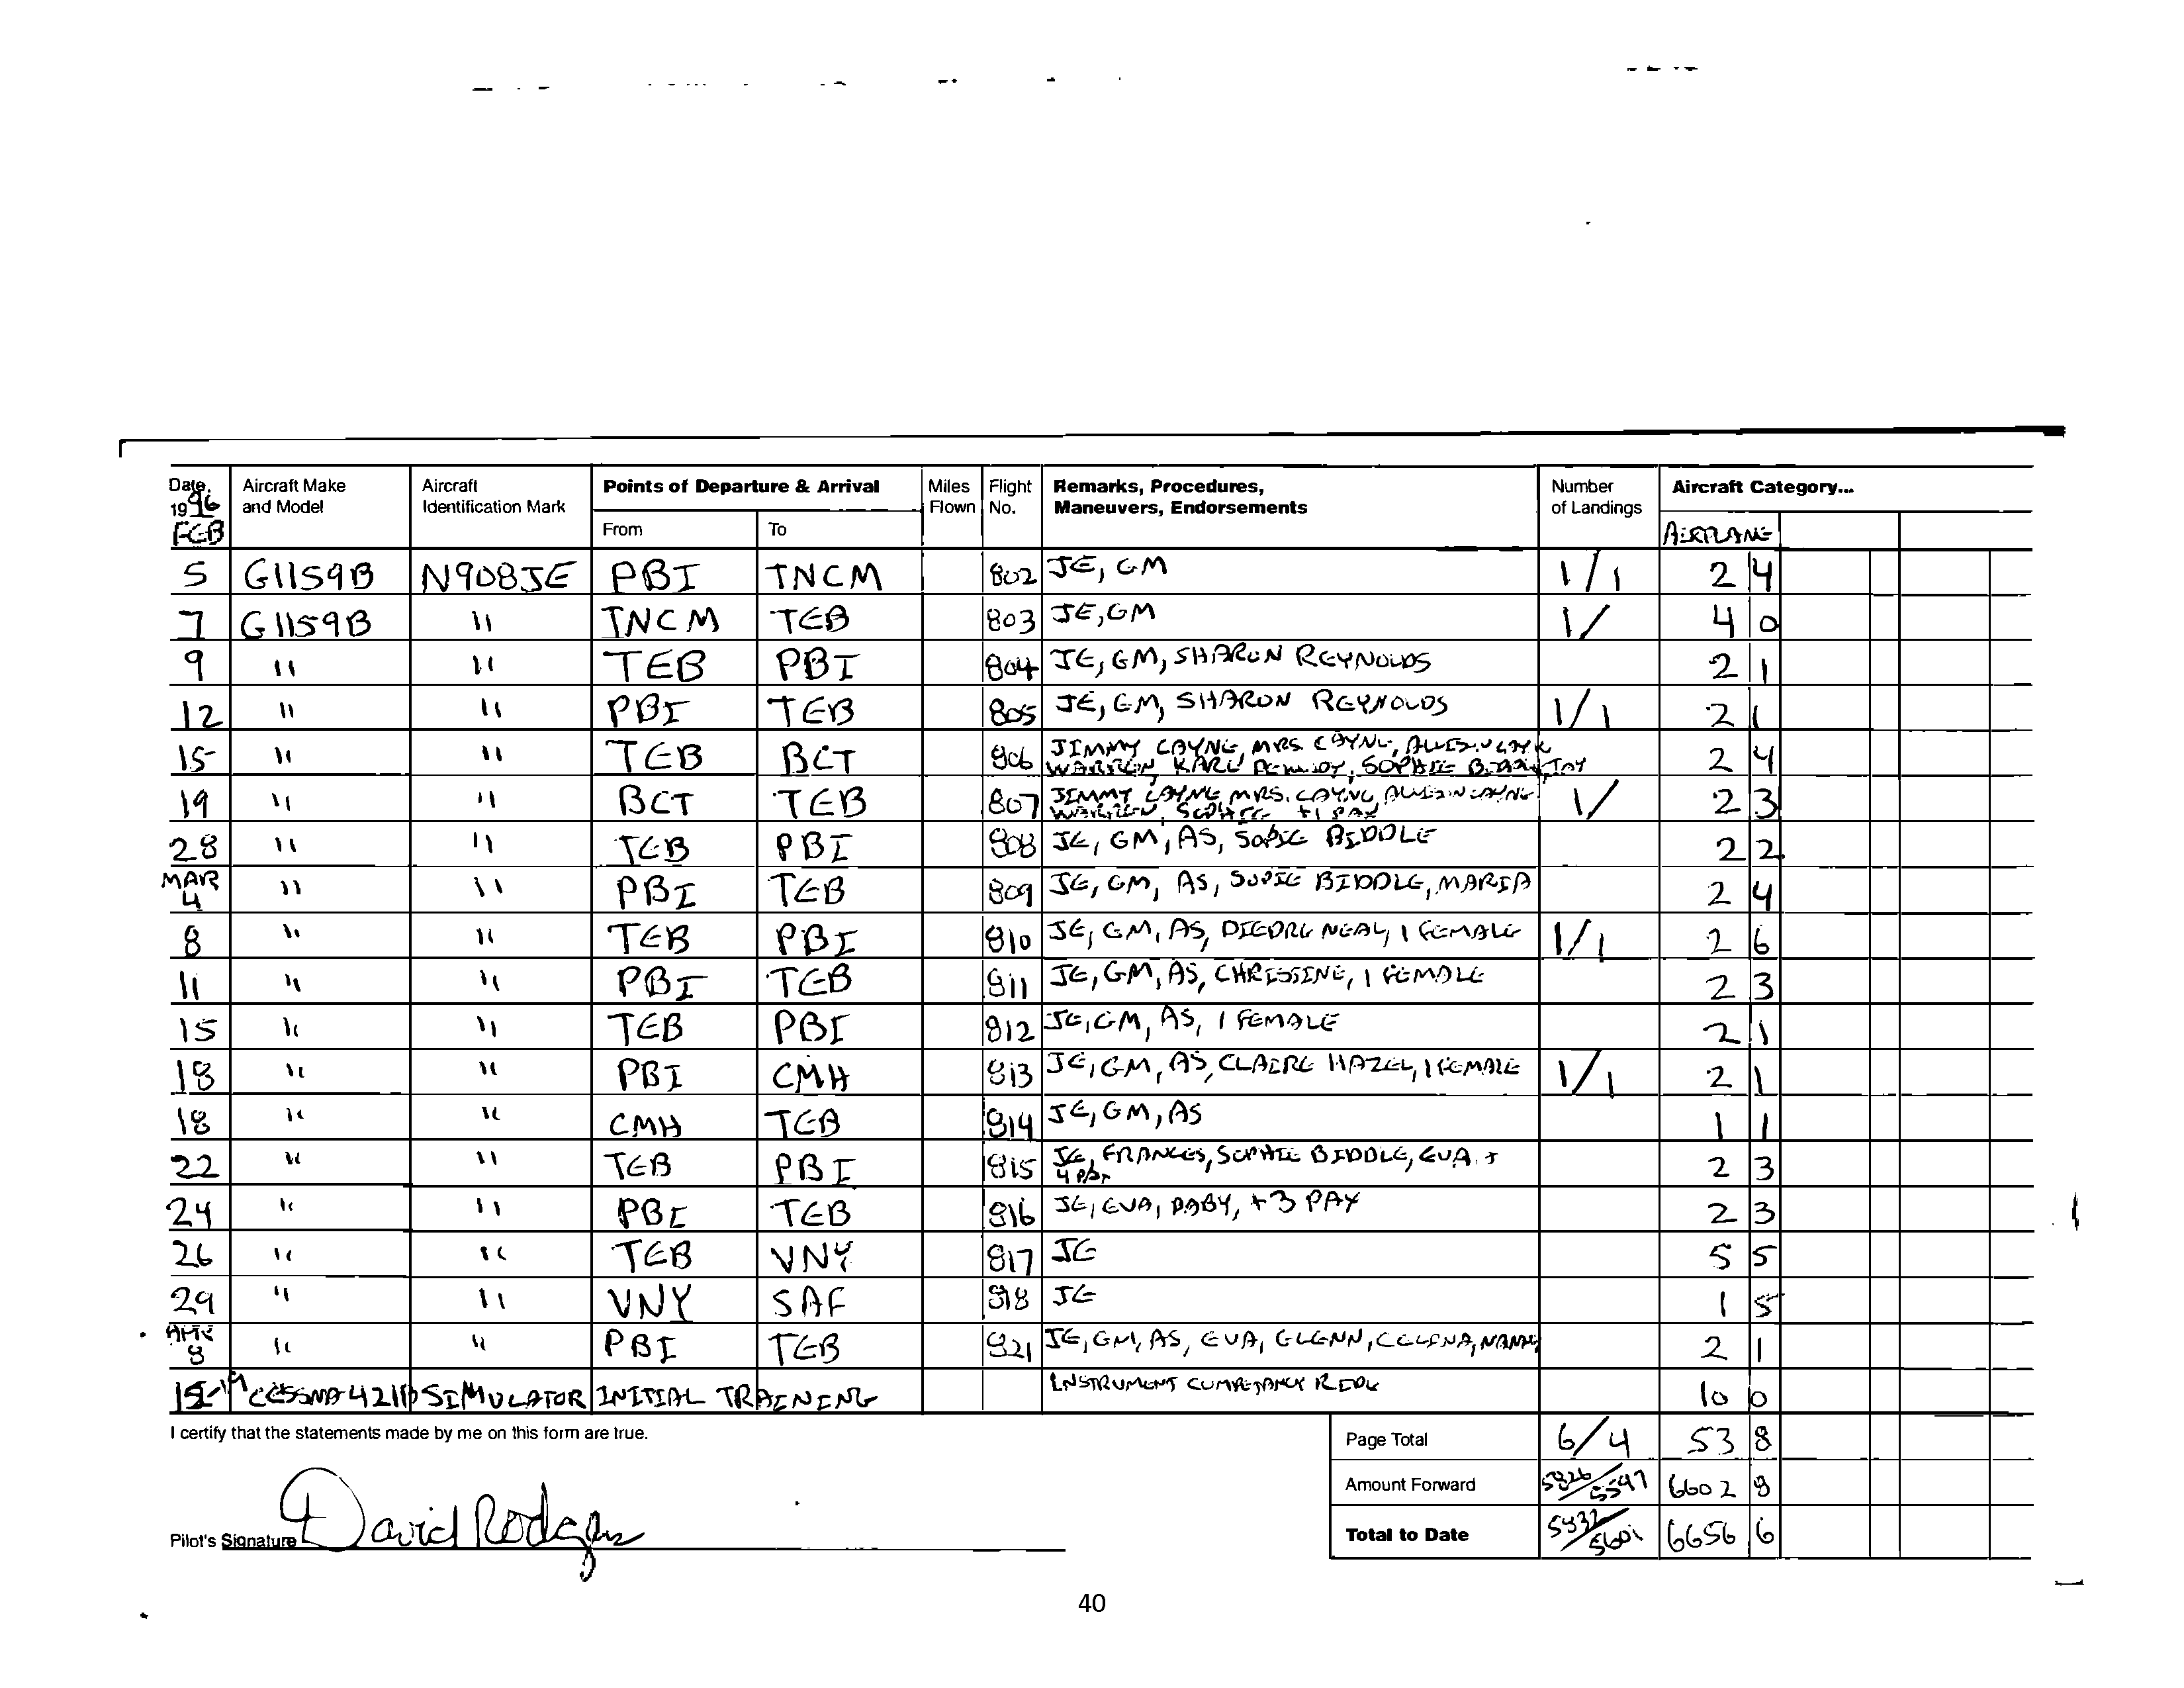 Date, Aircraft Make Aircraft Points of Departure & Arrival Miles Flight Remarks, Procedures, Number Aircraft Category...
1996 and Model Identification Mark Flown No. Maneuvers, Endorsements of Landings
FEB From To AIRPLANE
5 G1159B N908JE PBI TNCM 802 JE, GM 1/1 2 4
7 G1159B " TNCM TEB 803 JE, GM 1/ 4 0
9 " " TEB PBI 804 JE, GM, SHARON REYNOLDS 2 1
12 " " PBI TEB 805 JE, GM, SHARON REYNOLDS 1/1 2 1
15 " " TEB BCT 806 JIMMY CAYNE, MRS. CAYNE, 2 4
WARREN, KARU SOPHIE
19 " " BCT TEB 807 JIMMY CAYNE MRS. CAYNE 1/ 2 3
WARREN, +1 PAX
28 " " TEB PBI 808 JE, GM, AS, SOPIE BIDDLE 2 2
MAR
4 " " PBI TEB 809 JE, GM, AS, SOPIE BIDDLE, MARIA 2 4
8 " " TEB PBI 810 JE, GM, AS, DIEDRE NEAL, 1 FEMALE 1/1 2 6
11 " " PBI TEB 811 JE, GM, AS, CHRISSINE, 1 FEMALE 2 3
15 " " TEB PBI 812 JE, GM, AS, 1 FEMALE 2 1
18 " " PBI CMH 813 JE, GM, AS, CLAIRE HAZEL, 1 FEMALE 1/1 2 1
18 " " CMH TEB 814 JE, GM, AS 1 1
22 " " TEB PBI 815 JE, FRANCES, SOPHIE BIDDLE, EVA, +
4 PAX 2 3
24 " " PBI TEB 816 JE, EVA, BABY, +3 PAX 2 3
26 " " TEB VNY 817 JE 5 5
29 " " VNY SAF 818 JE 1 5
APR
8 " " PBI TEB 821 JE, GM, AS, EVA, GLENN, CELENA, NANNY 2 1
15-19 CESSNA 421B SIMULATOR INITIAL TRAINING INSTRUMENT COMPETANCY 10 0
I certify that the statements made by me on this form are true. Page Total 6/4 53 8
Amount Forward 5826/5597 6602 8
Pilot's Signature David Rodgers Total to Date 5832/5601 6656 6
40